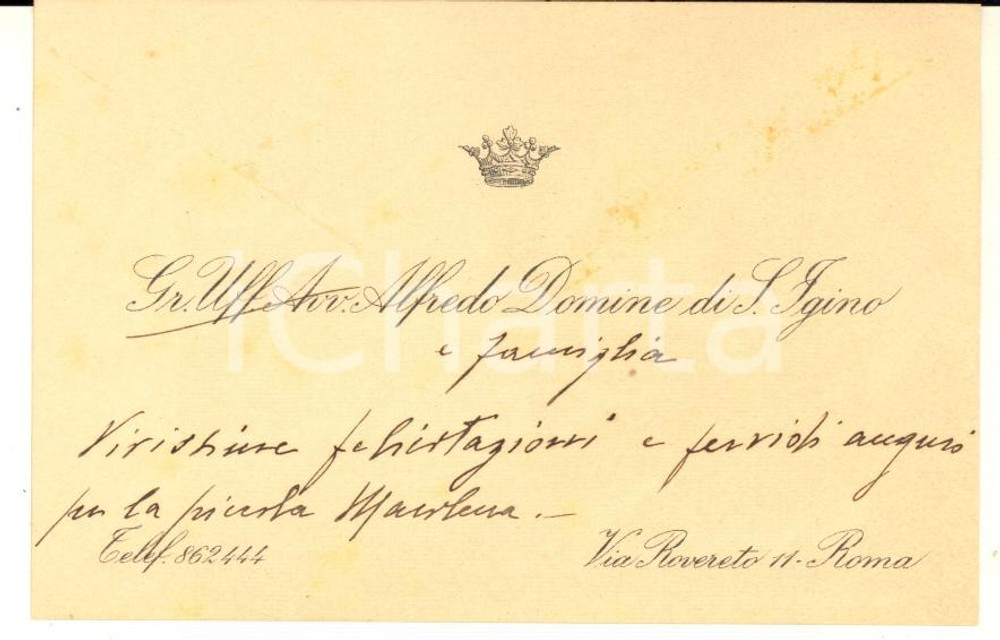 Gr. Uff. Avv. Alfredo Domine di S. Igino
e famiglia
Vivissime felicitazioni e fervidi auguri
per la piccola
Telef. 862444
Via Rovereto 11 - Roma
iCharta